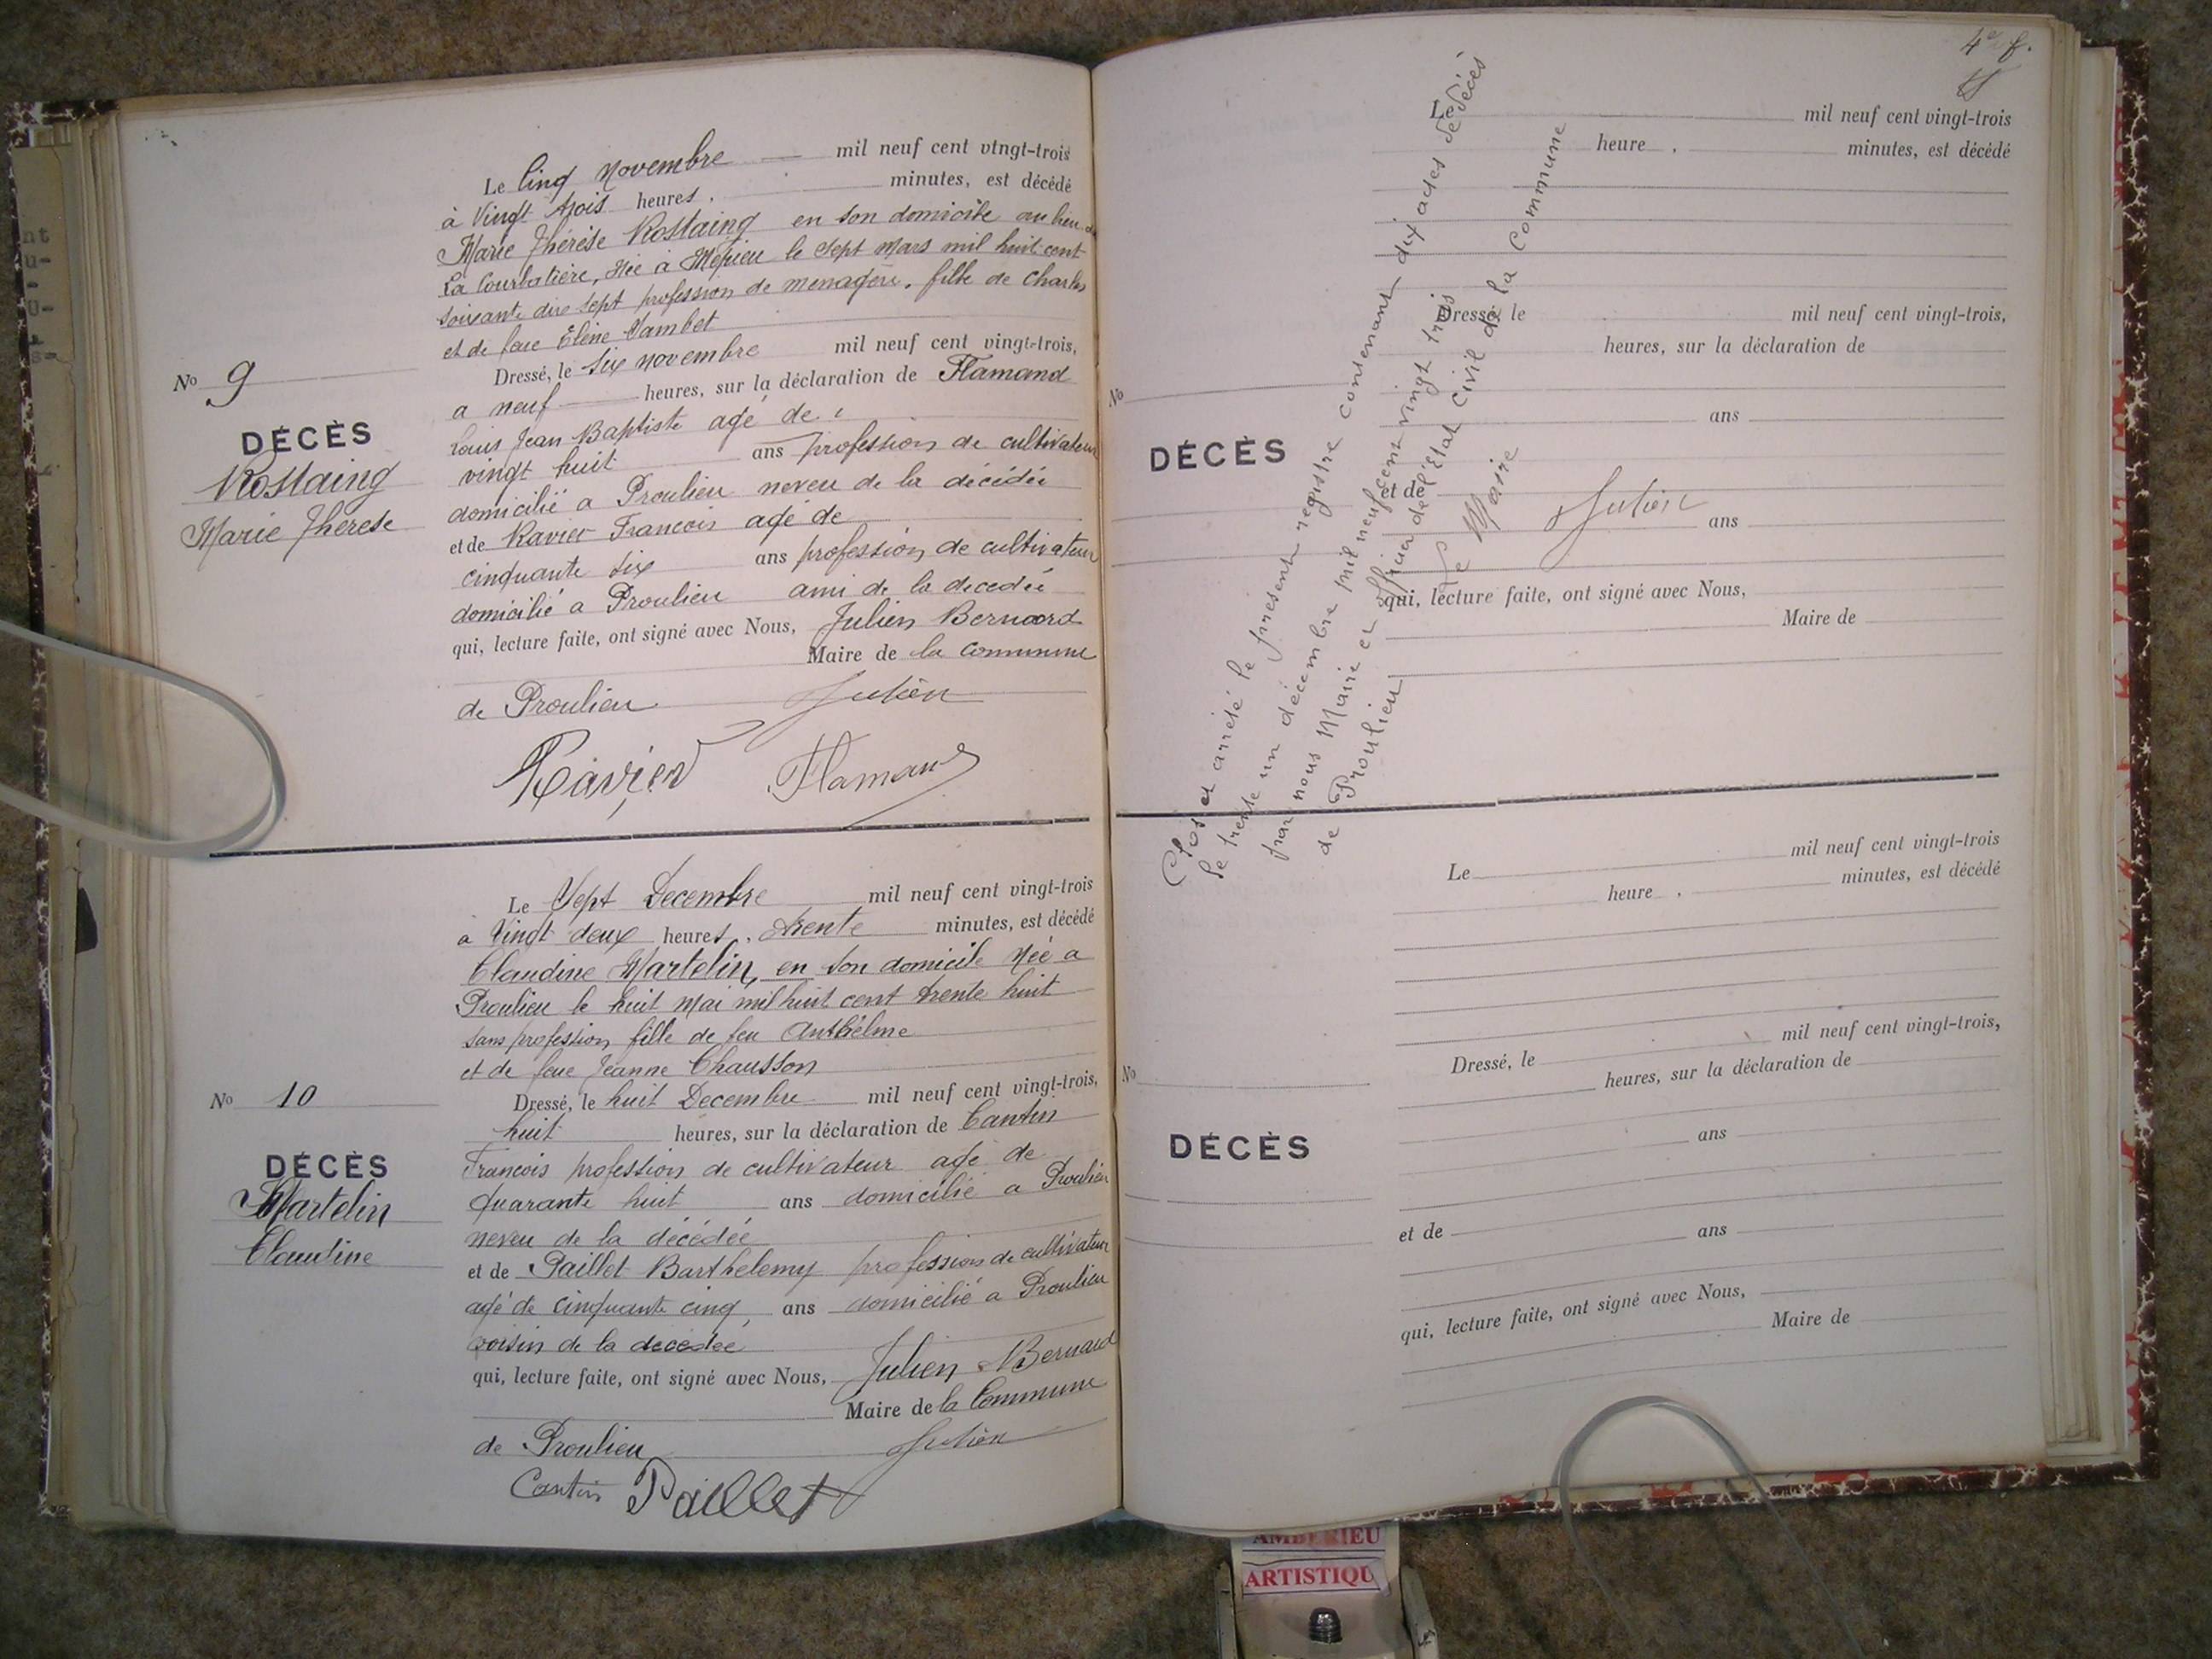 Le Cinq Novembre mil neuf cent vingt-trois
à Vingt trois heures, minutes, est décédé
Marie Thérèse Rostaing en son domicile au lieu de
La Courbatière, Née à Mépieu le Sept Mars mil huit cent
soixante dix sept profession de menagère, fille de Charles
et de feue Elène Jambet
No 9
DÉCÈS
Rostaing
Marie Thérèse
Dressé, le six novembre mil neuf cent vingt-trois,
a neuf heures, sur la déclaration de Flamand
Louis Jean Baptiste agé de
vingt huit ans profession de cultivateur
domicilié a Proulieu neveu de la décédée
et de Ravier Francois agé de
cinquante six ans profession de cultivateur
domicilié a Proulieu ami de la decedée
qui, lecture faite, ont signé avec Nous, Julien Bernard
Maire de la commune
de Proulieu Julien
Ravier Flamand
Le Sept Decembre mil neuf cent vingt-trois
a Vingt deux heures, trente minutes, est décédé
Claudine Martelin, en son domicile Née a
Proulieu le huit Mai mil huit cent trente huit
sans profession fille de feu Anthelme
et de feue Jeanne Chausson
No 10
DÉCÈS
Martelin
Claudine
Dressé, le huit Decembre mil neuf cent vingt-trois,
huit heures, sur la déclaration de Cantin
Francois profession de cultivateur agé de
quarante huit ans domicilié a Proulieu
neveu de la décédée
et de Paillet Barthelemy profession de cultivateur
agé de cinquante cinq, ans domicilié a Proulieu
voisin de la decedée
qui, lecture faite, ont signé avec Nous, Julien Bernard
Maire de la Commune
de Proulieu Julien
Cantin Paillet
4e f.
Le mil neuf cent vingt-trois
heure , minutes, est décédé
Dressé, le mil neuf cent vingt-trois,
heures, sur la déclaration de
No
DÉCÈS
ans
et de
ans
qui, lecture faite, ont signé avec Nous,
Maire de
Clos et arrêté le présent registre contenant dix actes de Décès
le trente un décembre mil neuf cent vingt trois
par nous Maire et officier de l'Etat Civil de la Commune
de Proulieu
Le Maire
Julien
Le mil neuf cent vingt-trois
heure , minutes, est décédé
Dressé, le mil neuf cent vingt-trois,
heures, sur la déclaration de
No
DÉCÈS
ans
et de
ans
qui, lecture faite, ont signé avec Nous,
Maire de
AMBERIEU
ARTISTIQU